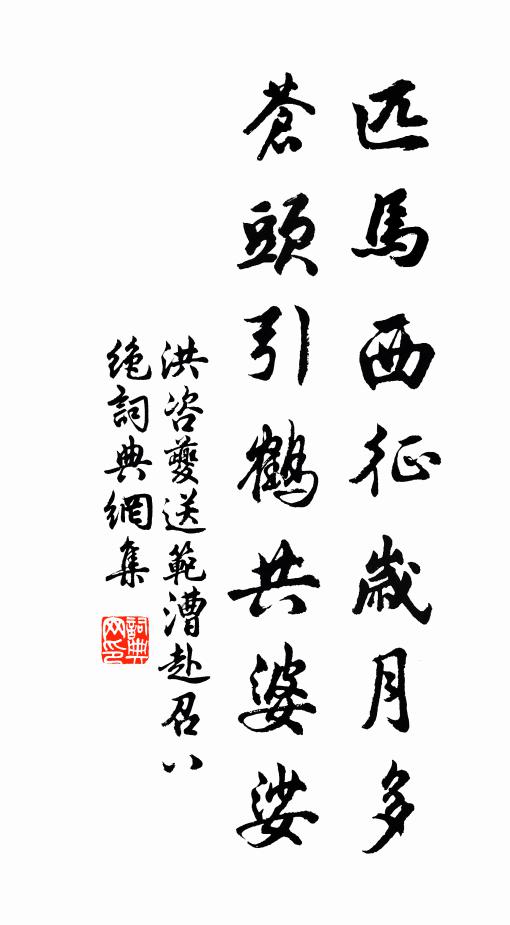 匹馬西征歲月多
蒼頭引鶴共婆娑
洪咨夔送範漕赴召八
絶詞典網集
詞典网印